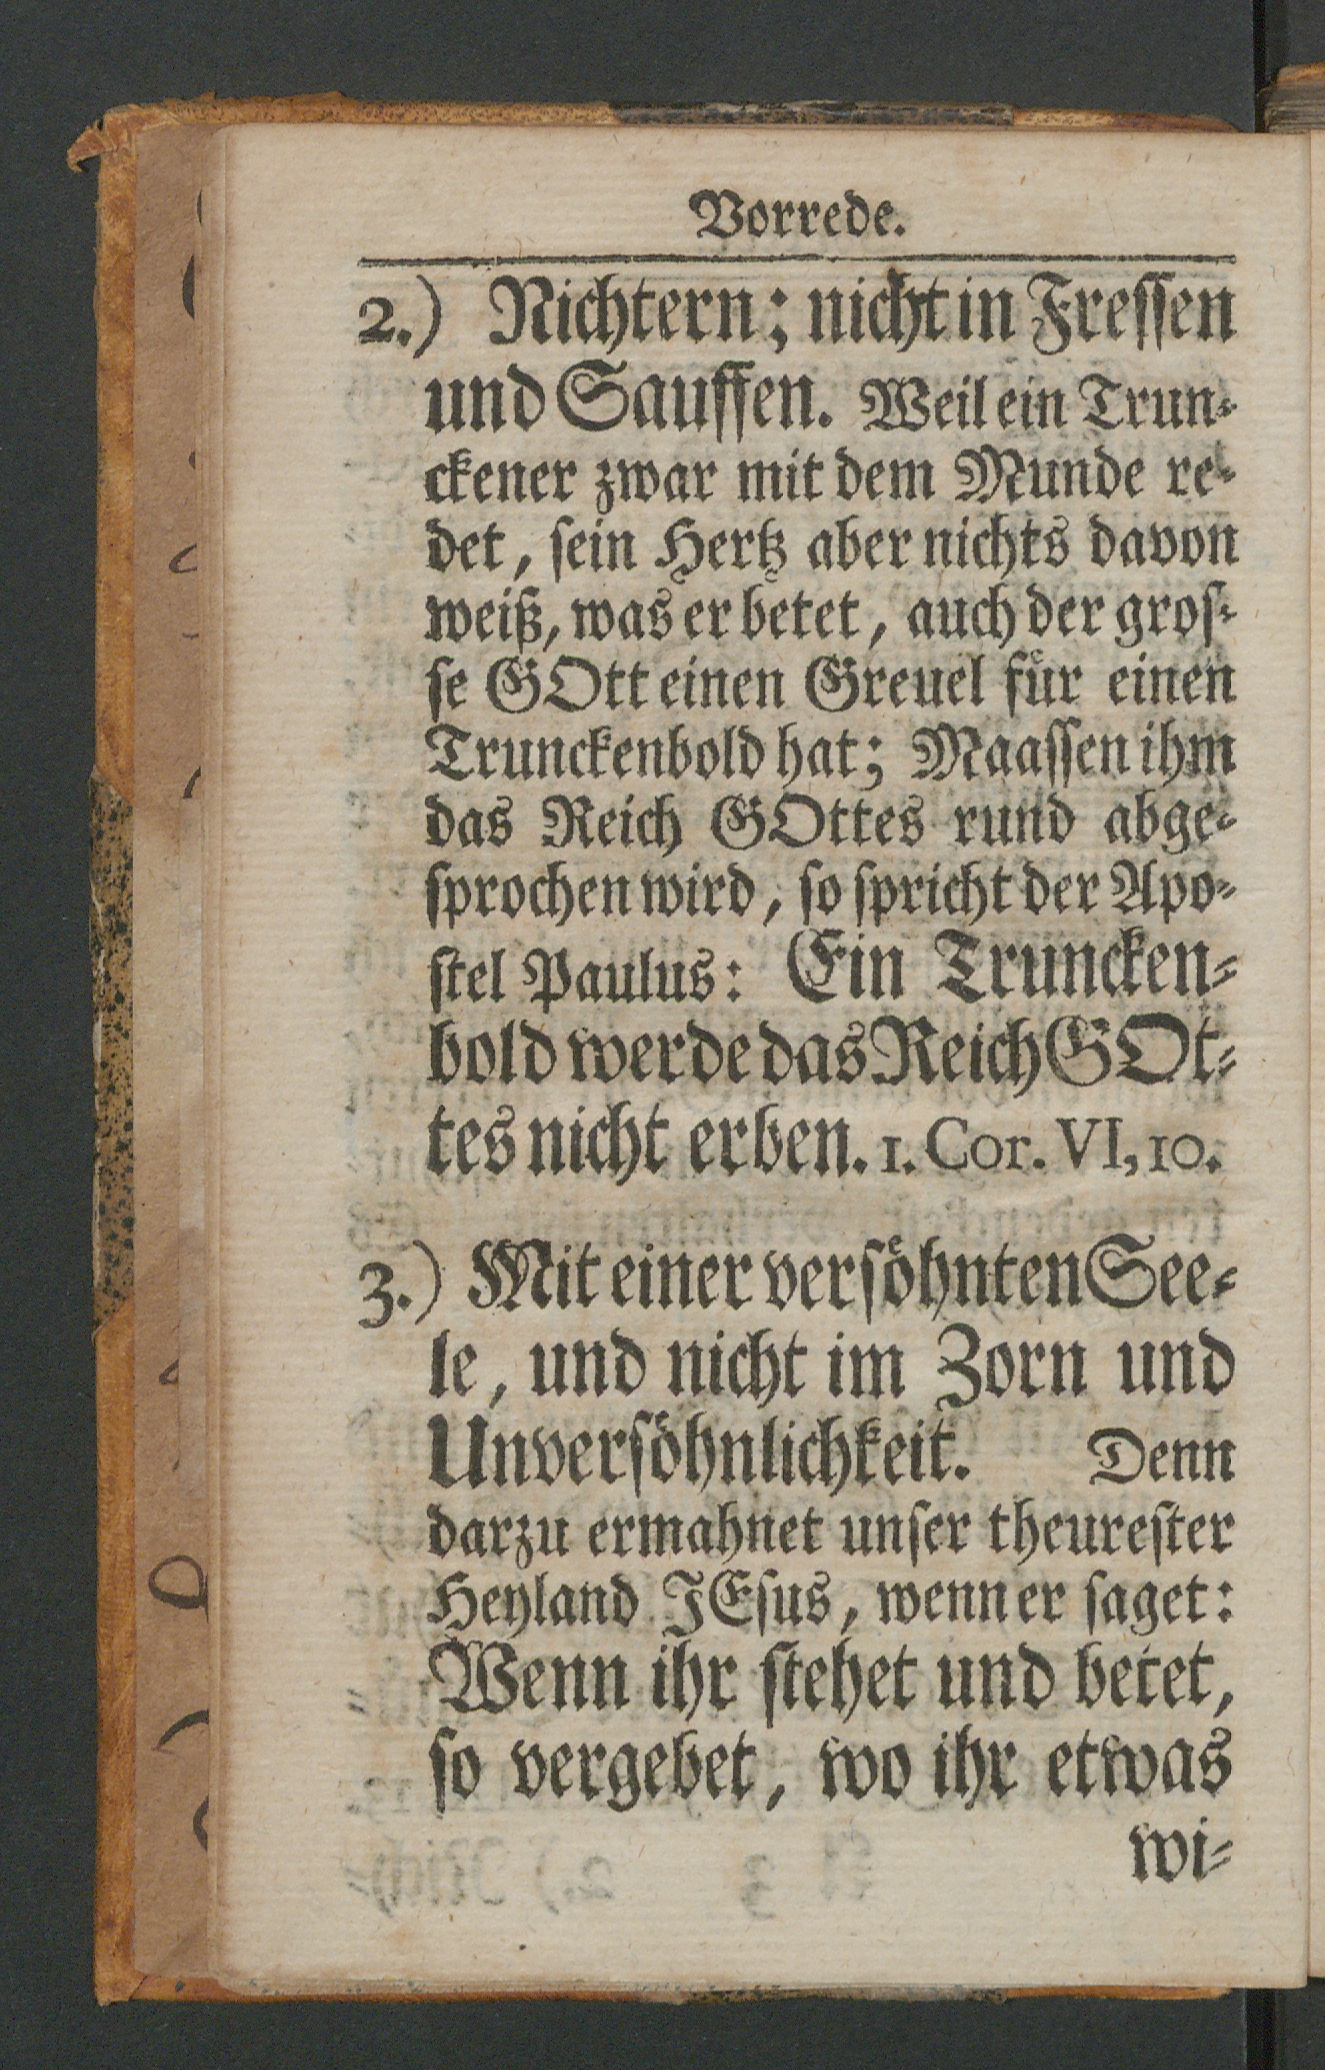 Vorrede.
2.) Nichtern; nicht in Fressen
und Sauffen. Weil ein Trun-
ckener zwar mit dem Munde re-
det, sein Hertz aber nichts davon
weiß, was er betet, auch der gros-
se GOtt einen Greuel für einen
Trunckenbold hat; Maassen ihm
das Reich GOttes rund abge-
sprochen wird, so spricht der Apo-
stel Paulus: Ein Truncken-
bold werde das Reich GOt-
tes nicht erben. 1. Cor. VI, 10.
3.) Mit einer versöhnten See-
le, und nicht im Zorn und
Unversöhnlichkeit. Denn
darzu ermahnet unser theurester
Heyland JEsus, wenn er saget:
Wenn ihr stehet und betet,
so vergebet, wo ihr etwas
wi-